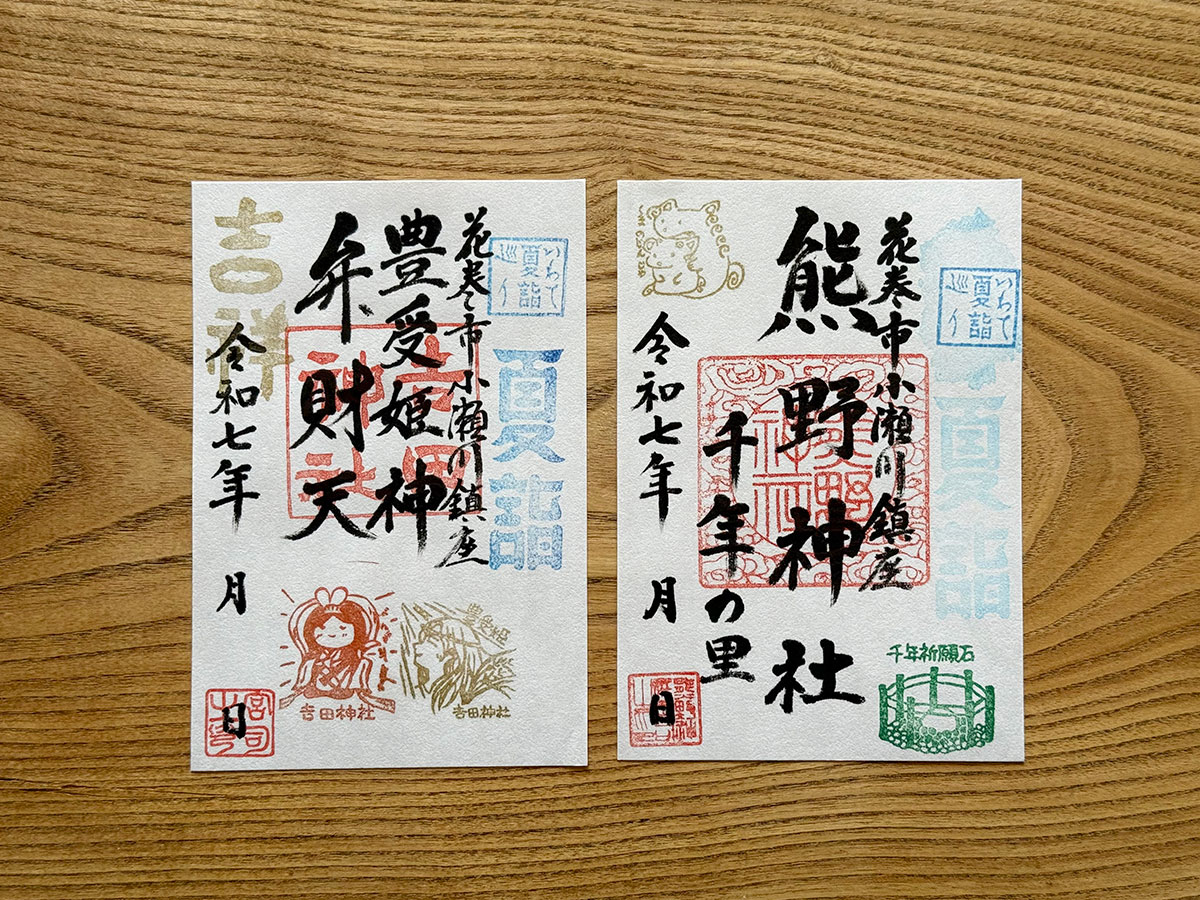 花巻市小瀬川鎮座
豊受姫神
弁財天
吉祥
令和七年 月 日
いわて
夏詣
巡り
夏詣
吉田神社
豊受姫
吉田神社
吉田神社
宮司
花巻市小瀬川鎮座
熊野神社
千年の里
令和七年 月 日
いわて
夏詣
巡り
夏詣
熊野
神社
千年祈願石